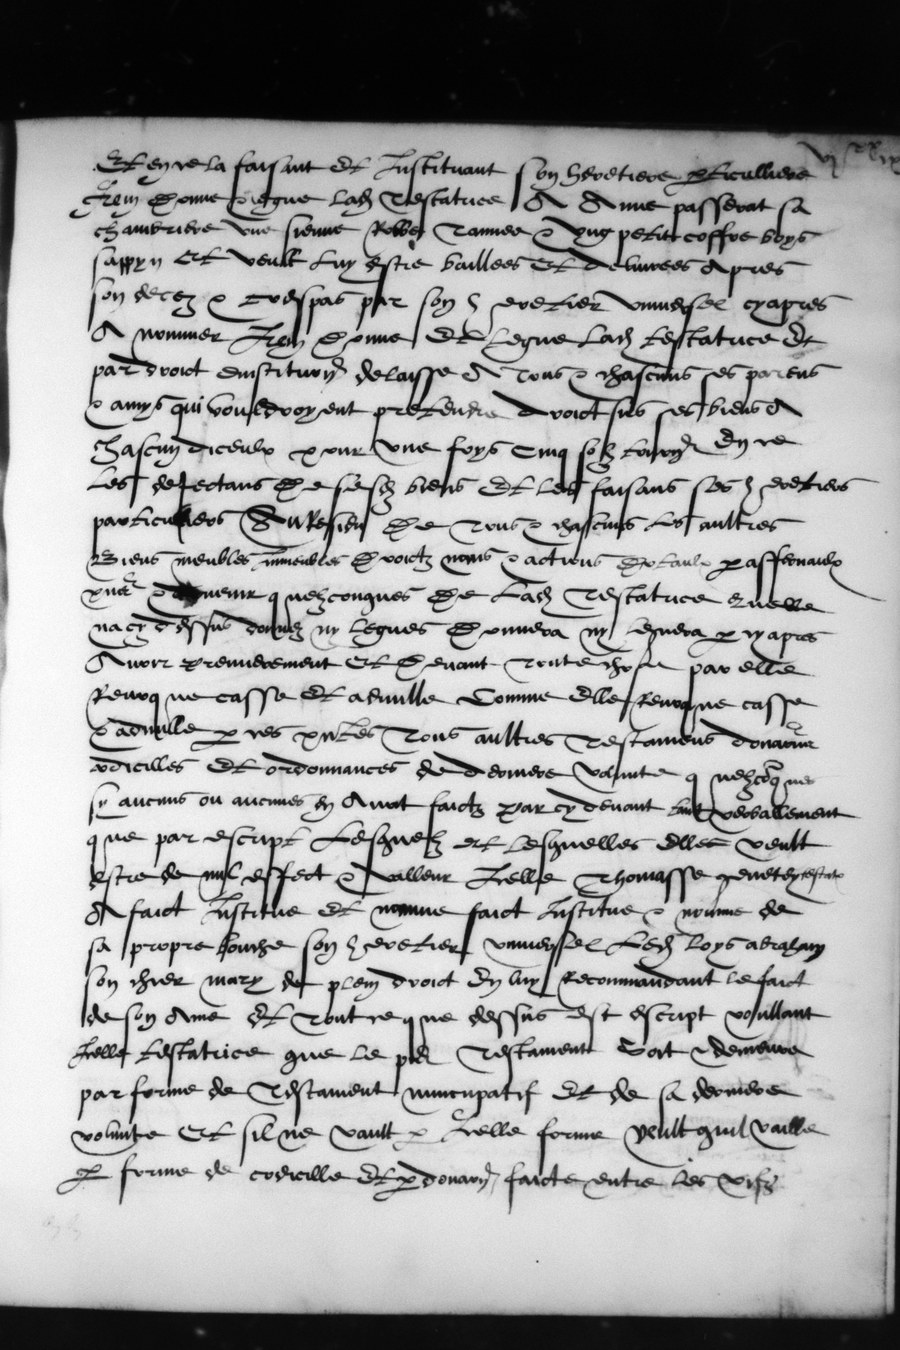 Et en ce la faisant et Instituant son heretiere p̱ticulliere
Item donne et legue lad testatrice A Anne passerat sa
chambriere une sienne Robbe Tannee & ung petit coffre boys
sappyn Et veult luy estre baillees Et delivrees Apres
son decez & trespas par son heretier universel cy apres
A nommer Item donne Et legue lad testatrice Et
par droict dinstitution delaisse A Tous & chascuns ses parens
& amys qui vouldroyent pretendre droict sus ses biens A
chascun diceulx pour une foys Cinq solz tournois En ce
Les dejectans de sesd biens Et les faisans ses heretiers
particuliers Au Residu De Tous & chascuns les aultres
Biens meubles Immeubles droictz noms & actions
& advenir quelzconques De Lad Testatrice
na cy dessus donnez ny legues donnera ny leguera p̱ cy apres
Avoir premierement Et devant toute chose par elle
Revoque casse Et adnulle Comme Elle Revoque casse
& adnulle p̱ ces pñtes Tous aultres Testamens
codicilles Et ordonnances de derniere volunte quelzconques
sy aucuns ou aucunes En Avoit faictz par cy devant tant verballement
que par escript Lesquelz et lesquelles Elles veult
estre de nul effect & valleur Icelle Thomasse
A faict Institue Et nomme faict Institue & nomme de
sa propre bouche son heretier universel Led Loys
son chier mary de plein droict En luy Recommandant le faict
de son Ame Et Tout ce que dessus est escript voullant
Icelle testatrice que le pñt Testament soit & demeure
par forme de Testament nuncupatif Et de sa derniere
volunte Et sil ne vault p̱ Icelle forme veult quil vaille
p̱ forme de codicille Et p̱ donation faicte entre les vifz